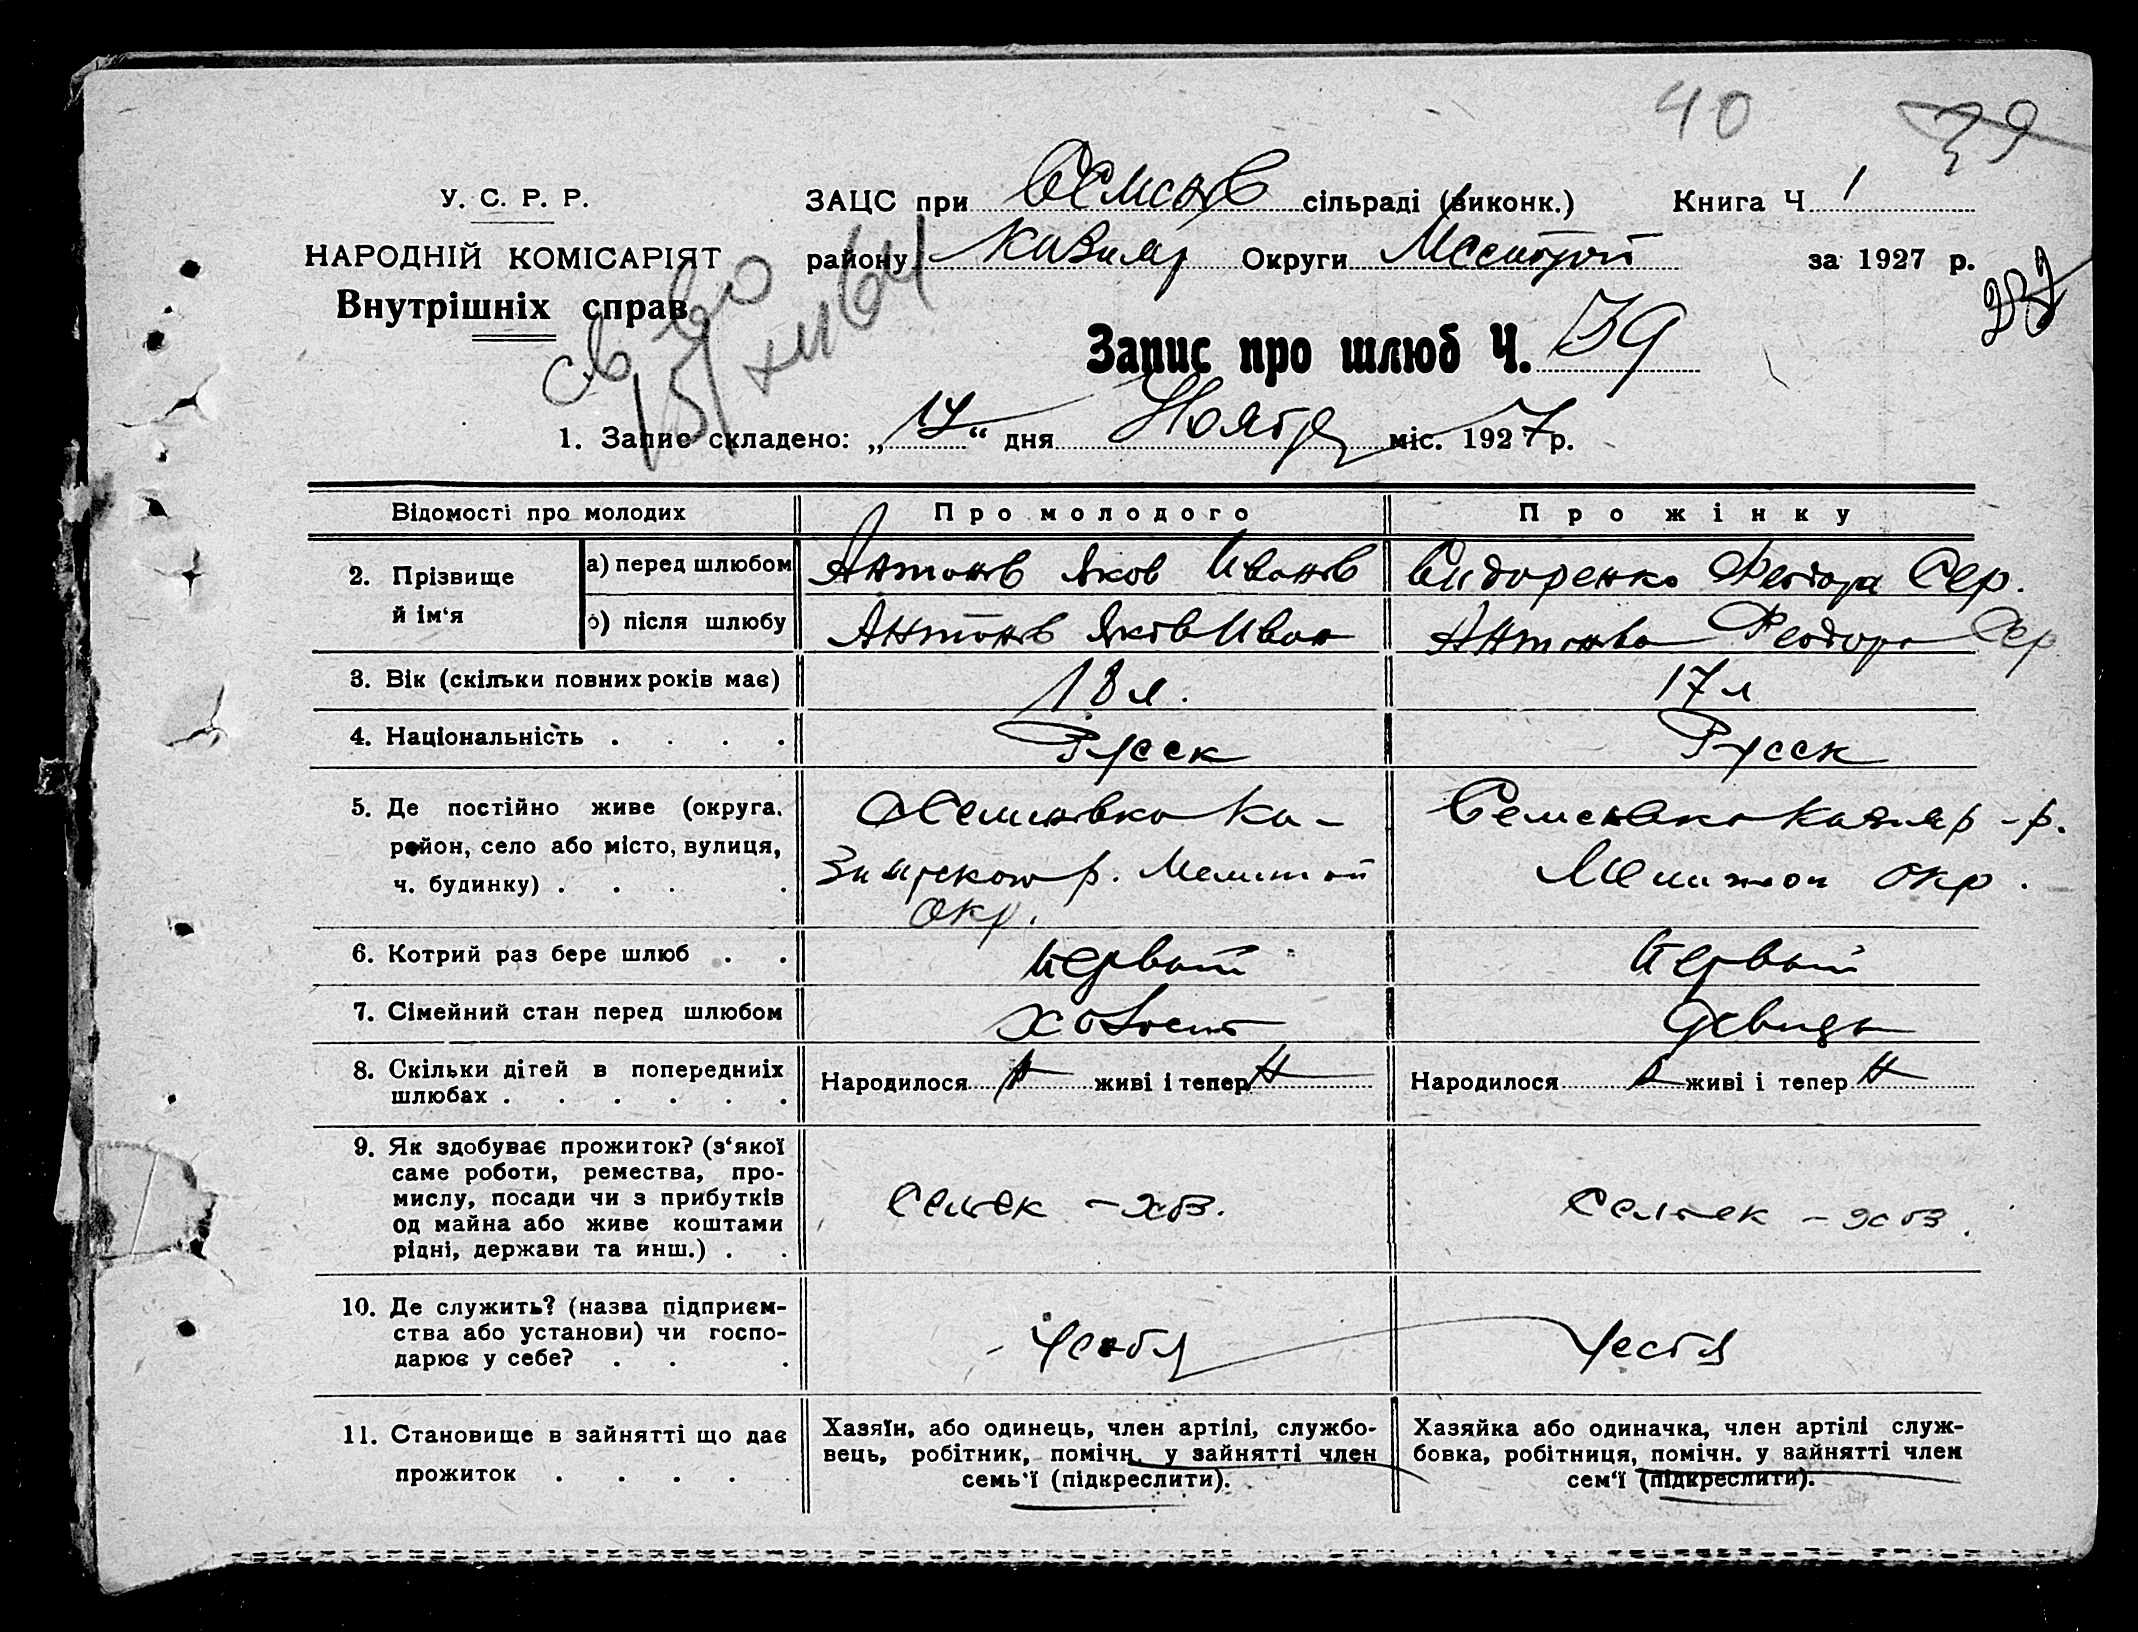 40 39
У. С. Р. Р.
ЗАЦС при Семенов сільраді (виконк.) Книга Ч 1
НАРОДНІЙ КОМІСАРІЯТ
району Кизияр Округи Мелитоп за 1927 р.
Внутрішніх справ
Св во
15/XII 64
Запис про шлюб Ч. 39
1. Запис складено: „14“ дня Ноября міс. 1927 р.
Відомості про молодих Про молодого Про жінку
2. Прізвище й ім‘я
а) перед шлюбом Антонов Яков Иванов Сидоренко Феодора Сер.
б) після шлюбу Антонов Яков Иван Антонова Феодора Сер
3. Вік (скільки повних років має) 18 л. 17 л
4. Національність . . . . Русск Русск
5. Де постійно живе (округа, Семеновка Ки- Семеновка Кизияр-р.
район, село або місто, вулиця, зиярского р. Мелитоп Мелитоп окр.
ч. будинку) . . . . окр.
6. Котрий раз бере шлюб . . Первый Первый
7. Сімейний стан перед шлюбом Холост Девица
8. Скільки дітей в попередніх
шлюбах . . . . . . Народилося живі і тепер Н Народилося живі і тепер Н
9. Як здобуває прожиток? (з‘якої
саме роботи, ремества, про-
мислу, посади чи з прибутків Сельск-хоз. Сельск-хоз.
од майна або живе коштами
рідні, держави та инш.) . .
10. Де служить? (назва підприєм-
ства або установи) чи госпо- У себя У себя
дарює у себе? . . .
11. Становище в зайнятті що дає
прожиток . . . . .
Хазяїн, або одинець, член артілі, службо-
вець, робітник, помічн. у зайнятті член
семь‘ї (підкреслити).
Хазяйка або одиначка, член артілі служ-
бовка, робітниця, помічн. у зайнятті член
сем‘ї (підкреслити).